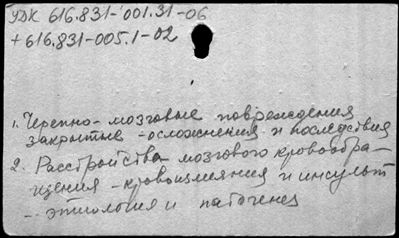 УДК 616.831-001.31-06
+616.831-005.1-02
1. Черепно-мозговые повреждения
закрытые - осложнения и последствия
2. Расстройства мозгового кровообра-
щения - кровоизлияния и инсульт
- этиология и патогенез